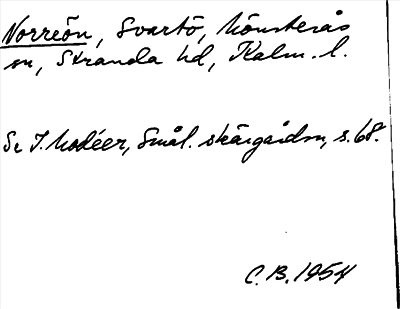 Norreön, Svartö, Mönsterås
sn, Stranda hd, Kalm. l.
Se I. Modéer, Smål. skärgårdsn, s. 68.
C. B. 1954